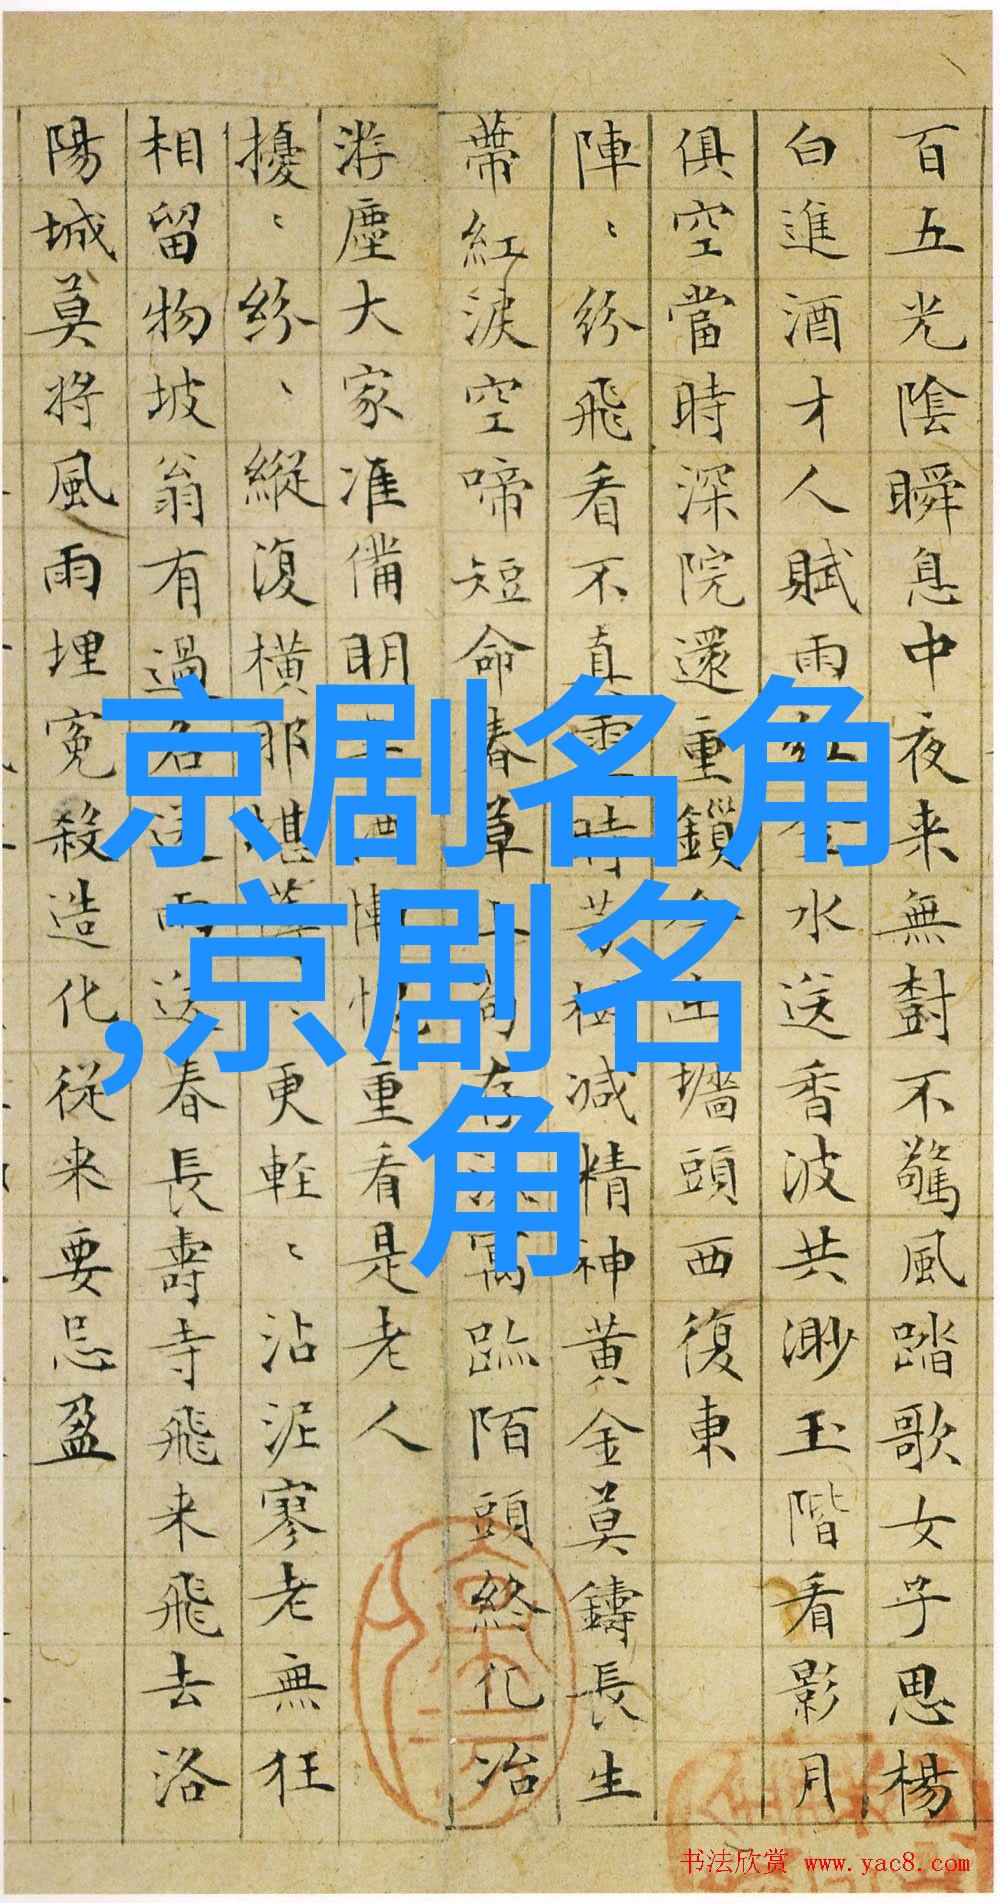 百五光陰瞬息中夜来無對不驚風踏歌女子思楊
白進酒才人賦雨紅金水送香波共渺玉階看影月
俱空當時深院還重鎖墻頭西復東
陣〻紛飛看不真霎時芳樹減精神黄金莫鑄長生
蒂紅淚空啼短命春草寓跡陌頭終化冶
游塵大家准備明重看是老人
擾〻紛〻縱復横那堪更輕〻沾泥寥老無狂
相留物坡翁有過名送雨送春長壽寺飛来飛去洛
陽城莫將風雨埋冤殺造化従来要忌盈
京剧名角
,京剧名
角
书法欣赏 www.yac8.com